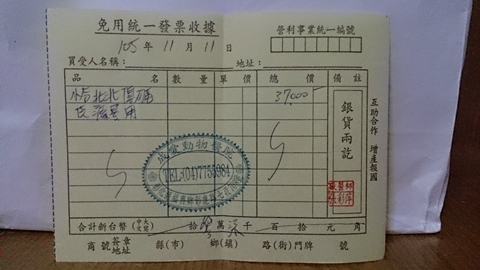 免用統一發票收據
營利事業統一編號
105 年 11 月 11 日
買受人名稱： 地址：
品 名 數 量 單 價 總 價 備 註
37,000
醫療費用
銀貨兩訖
互助合作 增產報國
動物醫院
TEL:(04)7755984
合計新台幣(中文大寫) 拾 參 萬 柒 千 百 拾 元 角
商號簽章地址 縣(市) 鄉(鎮) 路(街)門牌 號